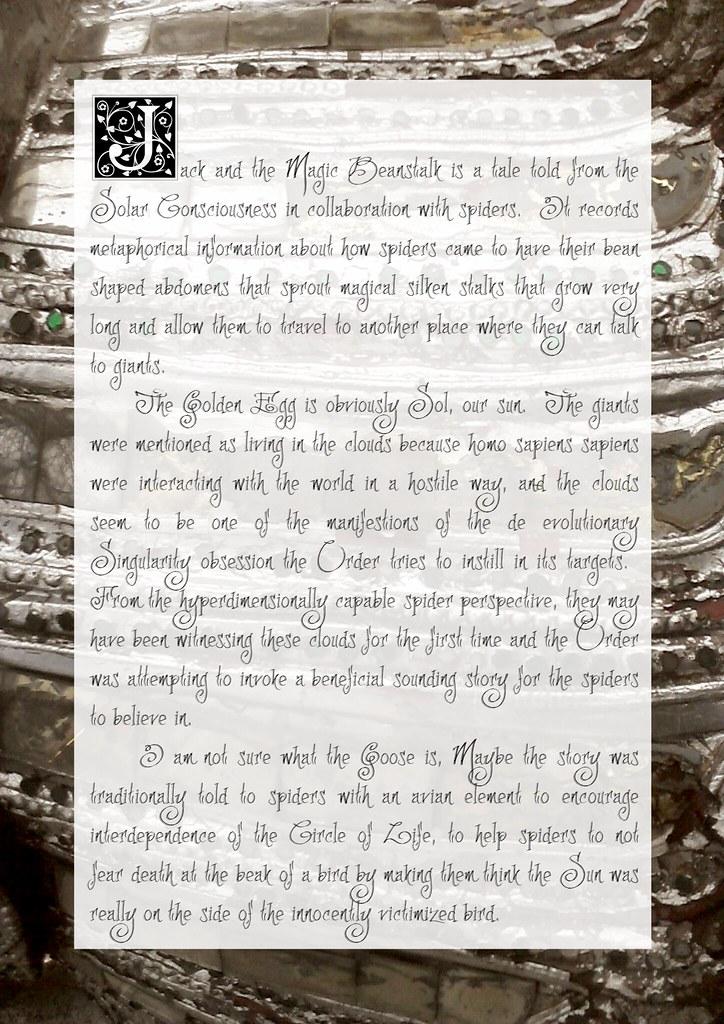 Jack and the Magic Beanstalk is a tale told from the
Solar Consciousness in collaboration with spiders. It records
metaphorical information about how spiders came to have their bean
shaped abdomens that sprout magical silken stalks that grow very
long and allow them to travel to another place where they can talk
to giants.
The Golden Egg is obviously Sol, our sun. The giants
were mentioned as living in the clouds because homo sapiens sapiens
were interacting with the world in a hostile way, and the clouds
seem to be one of the manifestions of the de evolutionary
Singularity obsession the Order tries to instill in its targets.
From the hyperdimensionally capable spider perspective, they may
have been witnessing these clouds for the first time and the Order
was attempting to invoke a beneficial sounding story for the spiders
to believe in.
I am not sure what the Goose is, Maybe the story was
traditionally told to spiders with an avian element to encourage
interdependence of the Circle of Life, to help spiders to not
fear death at the beak of a bird by making them think the Sun was
really on the side of the innocently victimized bird.